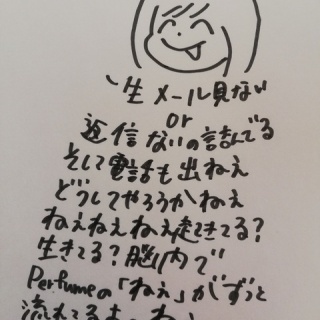 一生メール見ない
or
返信ないの詰んでる
そして電話も出ねえ
どうしてやろうかねえ
ねえねえねえ起きてる?
生きてる?脳内で
Perfumeの「ねぇ」がずっと
流れてるよ